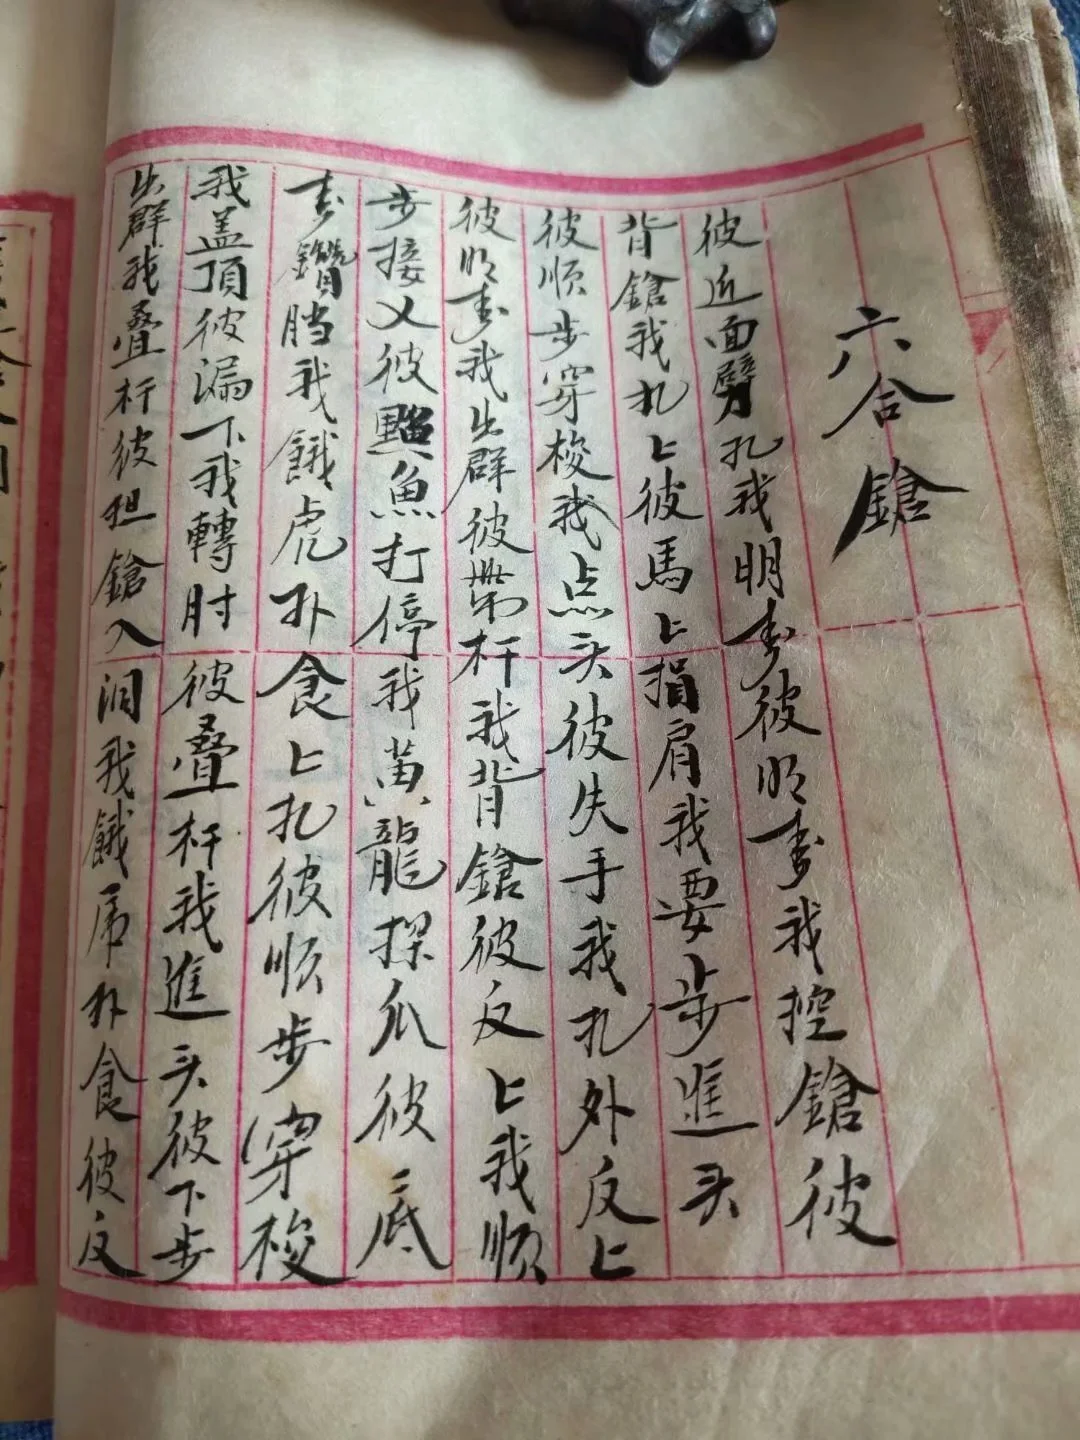 六合鎗
彼近面劈扎我明拿彼明拿我控鎗彼
背鎗我扎上彼馬上捐肩我要步進头
彼順步穿梭我点头彼失手我扎外反上
彼明拿我出群彼帶杆我背鎗彼反上我順
步接乂彼鰡魚打停我黄龍探爪彼底
拿鑽裆我餓虎扑食上扎彼順步穿梭
我盖頂彼漏下我轉肘彼叠杆我進头彼下步
出群我叠杆彼担鎗入洞我餓虎扑食彼反